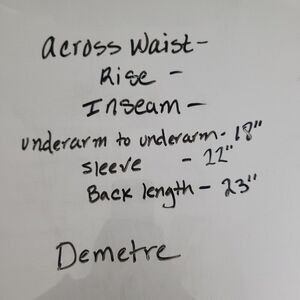 Across Waist -
Rise -
Inseam -
underarm to underarm - 18"
sleeve - 22"
Back length - 23"
Demetre